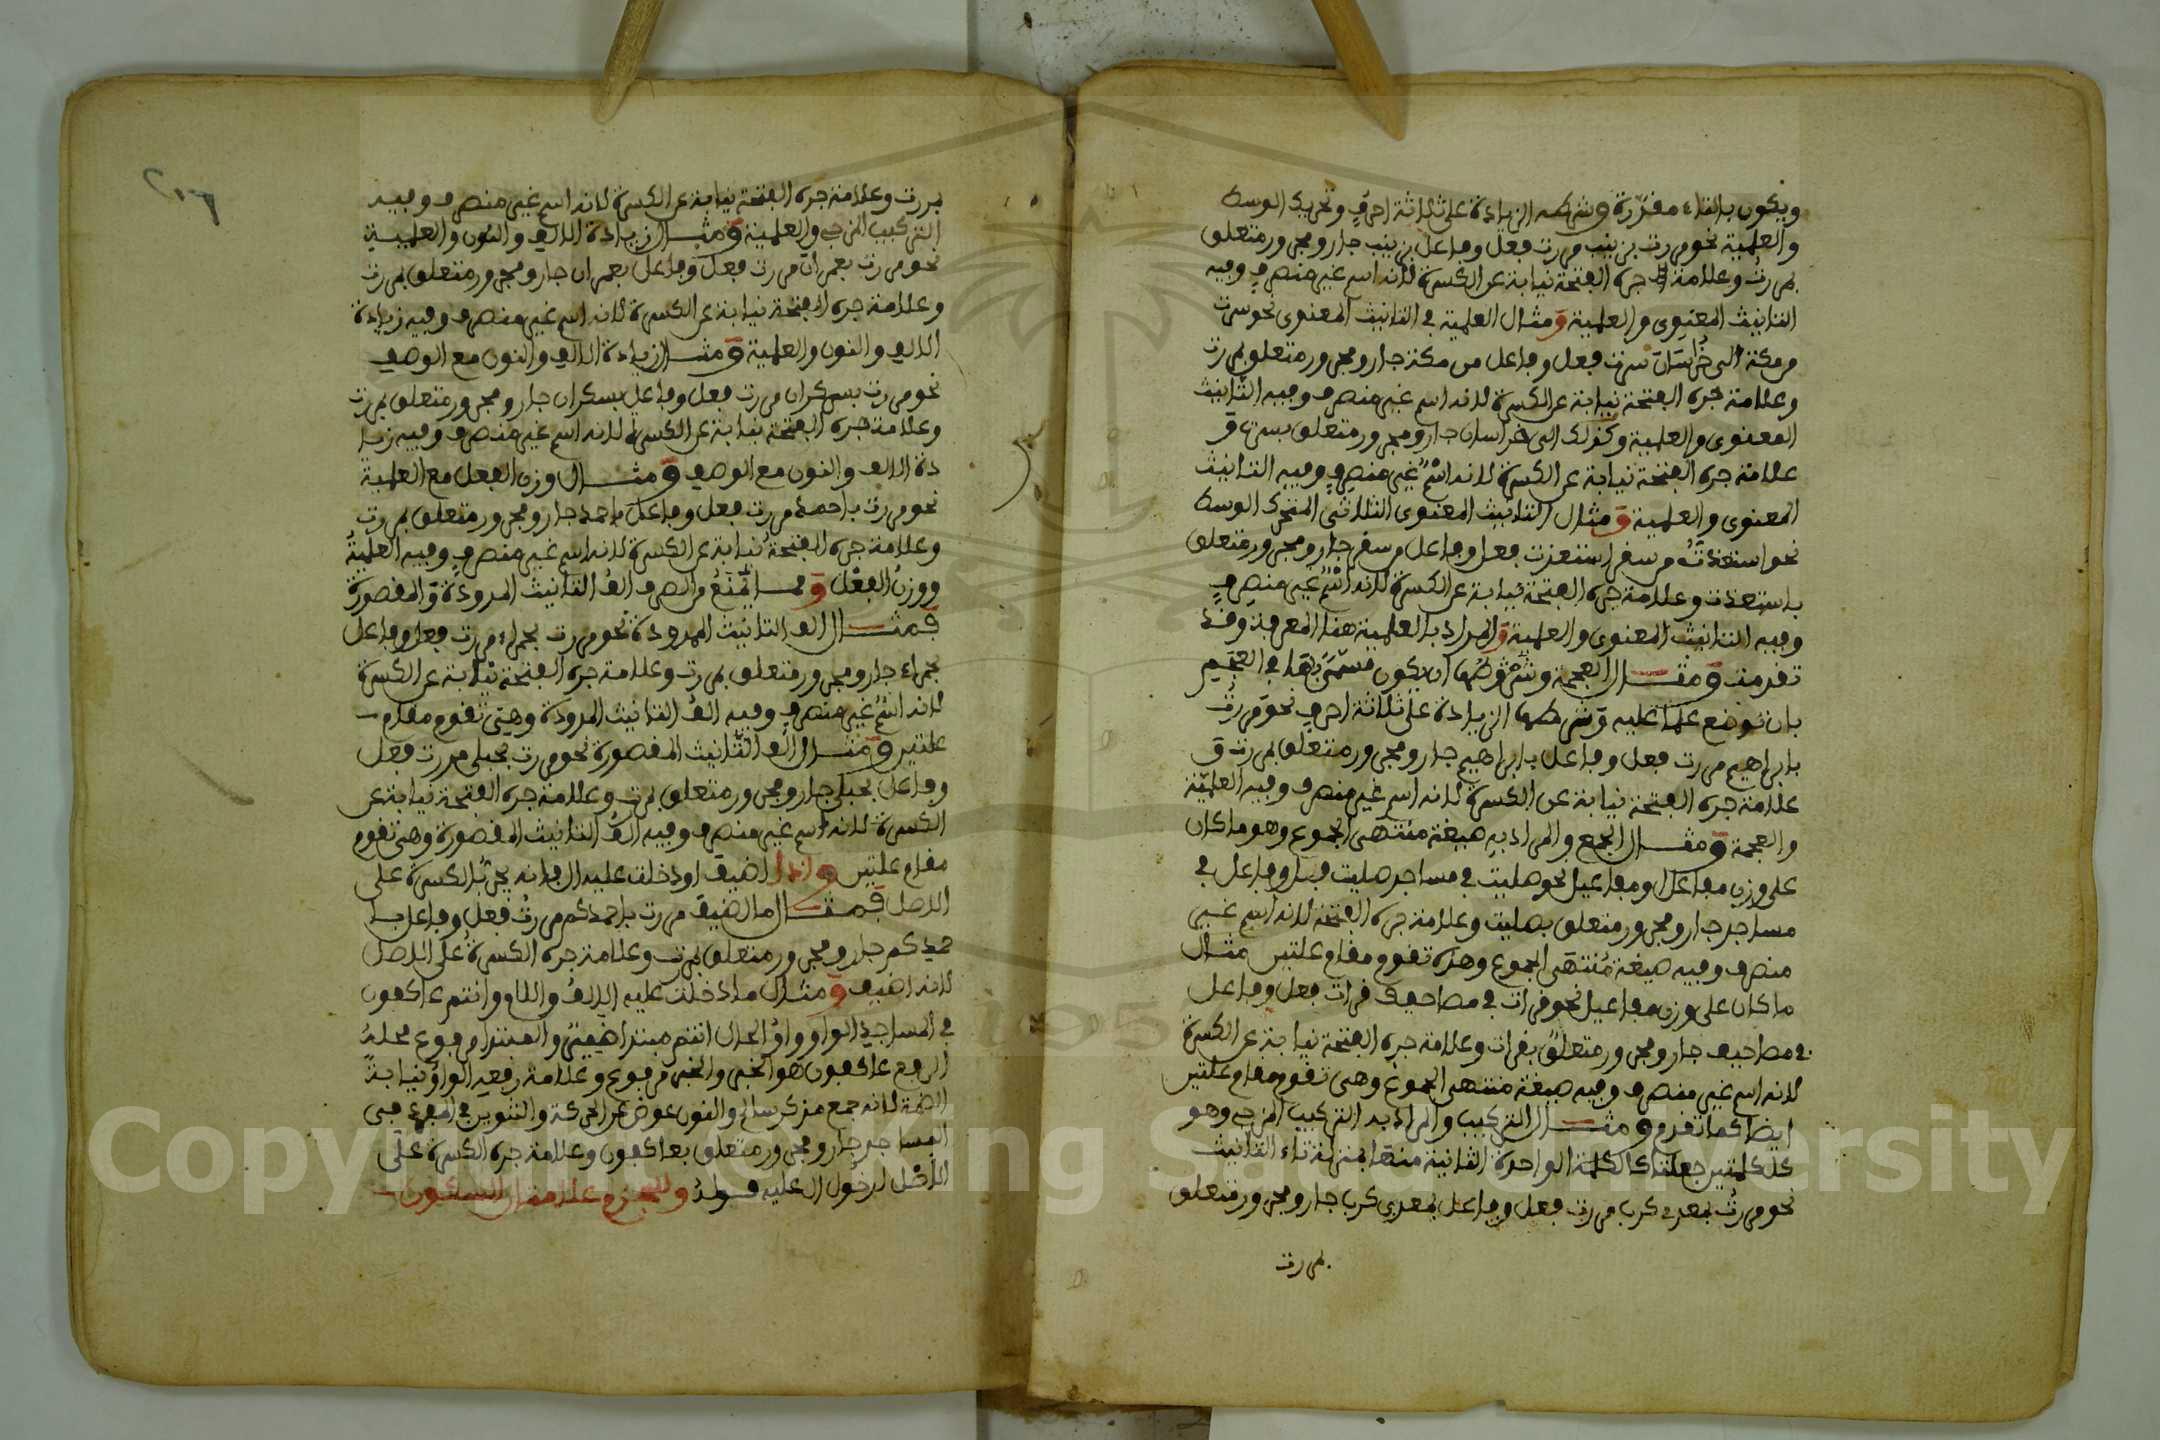 ويكون بالتاء مقدرة وشرطه الزيادة على ثلاثة احرف وتحريك الوسط
والعلمية نحو مررت بزينب مررت فعل وفاعل بزينب جار ومجرور متعلق
بمررت وعلامة جره الفتحة نيابة عن الكسرة لانه اسم غير منصرف وفيه
التانيث المعنوي والعلمية ومثال العلمية في التانيث المعنوي نحو سرت
من مكة الى خراسان سرت فعل وفاعل من مكة جار ومجرور متعلق بمررت
وعلامة جره الفتحة نيابة عن الكسرة لانه اسم غير منصرف وفيه التانيث
المعنوي والعلمية وكذلك الى خراسان جار ومجرور متعلق بسرت و
علامة جره الفتحة نيابة عن الكسرة لانه اسم غير منصرف وفيه التانيث
المعنوي والعلمية ومثال التانيث المعنوي الثلاثي المتحرك الوسط
نحو استعذت من سقر استعذت فعل وفاعل من سقر جار ومجرور متعلق
باستعذت وعلامة جره الفتحة نيابة عن الكسرة لانه اسم غير منصرف
وفيه التانيث المعنوي والعلمية والمراد بالعلمية هنا المعرفة وقد
تقدمت ومثال العجمة وشروطها ان يكون مسمى بها في العجم
بان توضع علما عليه وشرطها الزيادة على ثلاثة احرف نحو مررت
بابراهيم مررت فعل وفاعل بابراهيم جار ومجرور متعلق بمررت و
علامة جره الفتحة نيابة عن الكسرة لانه اسم غير منصرف وفيه العلمية
والعجمة ومثال الجمع والمراد به صيغة منتهى الجموع وهو ما كان
على وزن مفاعل او مفاعيل نحو صليت في مساجد صليت فعل وفاعل في
مساجد جار ومجرور متعلق بصليت وعلامة جره الفتحة لانه اسم غير
منصرف وفيه صيغة منتهى الجموع وهذه تقوم مقام علتين مثال
ما كان على وزن مفاعيل نحو قرات في مصاحيف قرات فعل وفاعل
في مصاحيف جار ومجرور متعلق بقرات وعلامة جره الفتحة نيابة عن الكسرة
لانه اسم غير منصرف وفيه صيغة منتهى الجموع وهي تقوم مقام علتين
ايضا كما تقدم ومثال التركيب والمراد به التركيب المزجي وهو
كل كلمتين جعلتا كالكلمة الواحدة الثانية منهما بمنزلة تاء التانيث
نحو مررت بمعدي كرب مررت فعل وفاعل بمعدي كرب جار ومجرور متعلق
بمررت
بررت وعلامة جره الفتحة نيابة عن الكسرة لانه اسم غير منصرف وفيه
التركيب المزجي والعلمية ومثال زيادة الالف والنون والعلمية
نحو مررت بعمران مررت فعل وفاعل بعمران جار ومجرور متعلق بمررت
وعلامة جره الفتحة نيابة عن الكسرة لانه اسم غير منصرف وفيه زيادة
الالف والنون والعلمية ومثال زيادة الالف والنون مع الوصف
نحو مررت بسكران مررت فعل وفاعل بسكران جار ومجرور متعلق بمررت
وعلامة جره الفتحة نيابة عن الكسرة لانه اسم غير منصرف وفيه زيا
دة الالف والنون مع الوصف ومثال وزن الفعل مع العلمية
نحو مررت باحمد مررت فعل وفاعل باحمد جار ومجرور متعلق بمررت
وعلامة جره الفتحة نيابة عن الكسرة لانه اسم غير منصرف وفيه العلمية
ووزن الفعل ومما يمنع من الصرف الف التانيث الممدودة والمقصورة
فمثال الف التانيث الممدودة نحو مررت بحمراء مررت فعل وفاعل
بحمراء جار ومجرور متعلق بمررت وعلامة جره الفتحة نيابة عن الكسرة
لانه اسم غير منصرف وفيه الف التانيث الممدودة وهي تقوم مقام
علتين ومثال الف التانيث المقصورة نحو مررت بحبلى مررت فعل
وفاعل بحبلى جار ومجرور متعلق بمررت وعلامة جره الفتحة نيابة عن
الكسرة لانه اسم غير منصرف وفيه الف التانيث المقصورة وهي تقوم
مقام علتين واذا اضيف او دخلت عليه ال فانه يجر بالكسرة على
الاصل فمثال ما اضيف مررت باحمدكم مررت فعل وفاعل با
حمدكم جار ومجرور متعلق بمررت وعلامة جره الكسرة على الاصل
لانه اضيف ومثال ما دخلت عليه الالف واللام وانتم عاكفون
في المساجد الواو واو الحال انتم مبتدا والمبتدا مرفوع محله
الرفع عاكفون هو الخبر والخبر مرفوع وعلامة رفعه الواو نيابة
الضمة لانه جمع مذكر سالم والنون عوض عن الحركة والتنوين في المفرد في
المساجد جار ومجرور متعلق بعاكفون وعلامة جره الكسرة على
الاصل لدخول ال عليه قوله وللجزم علامتان السكون
Copyright © King Saud University